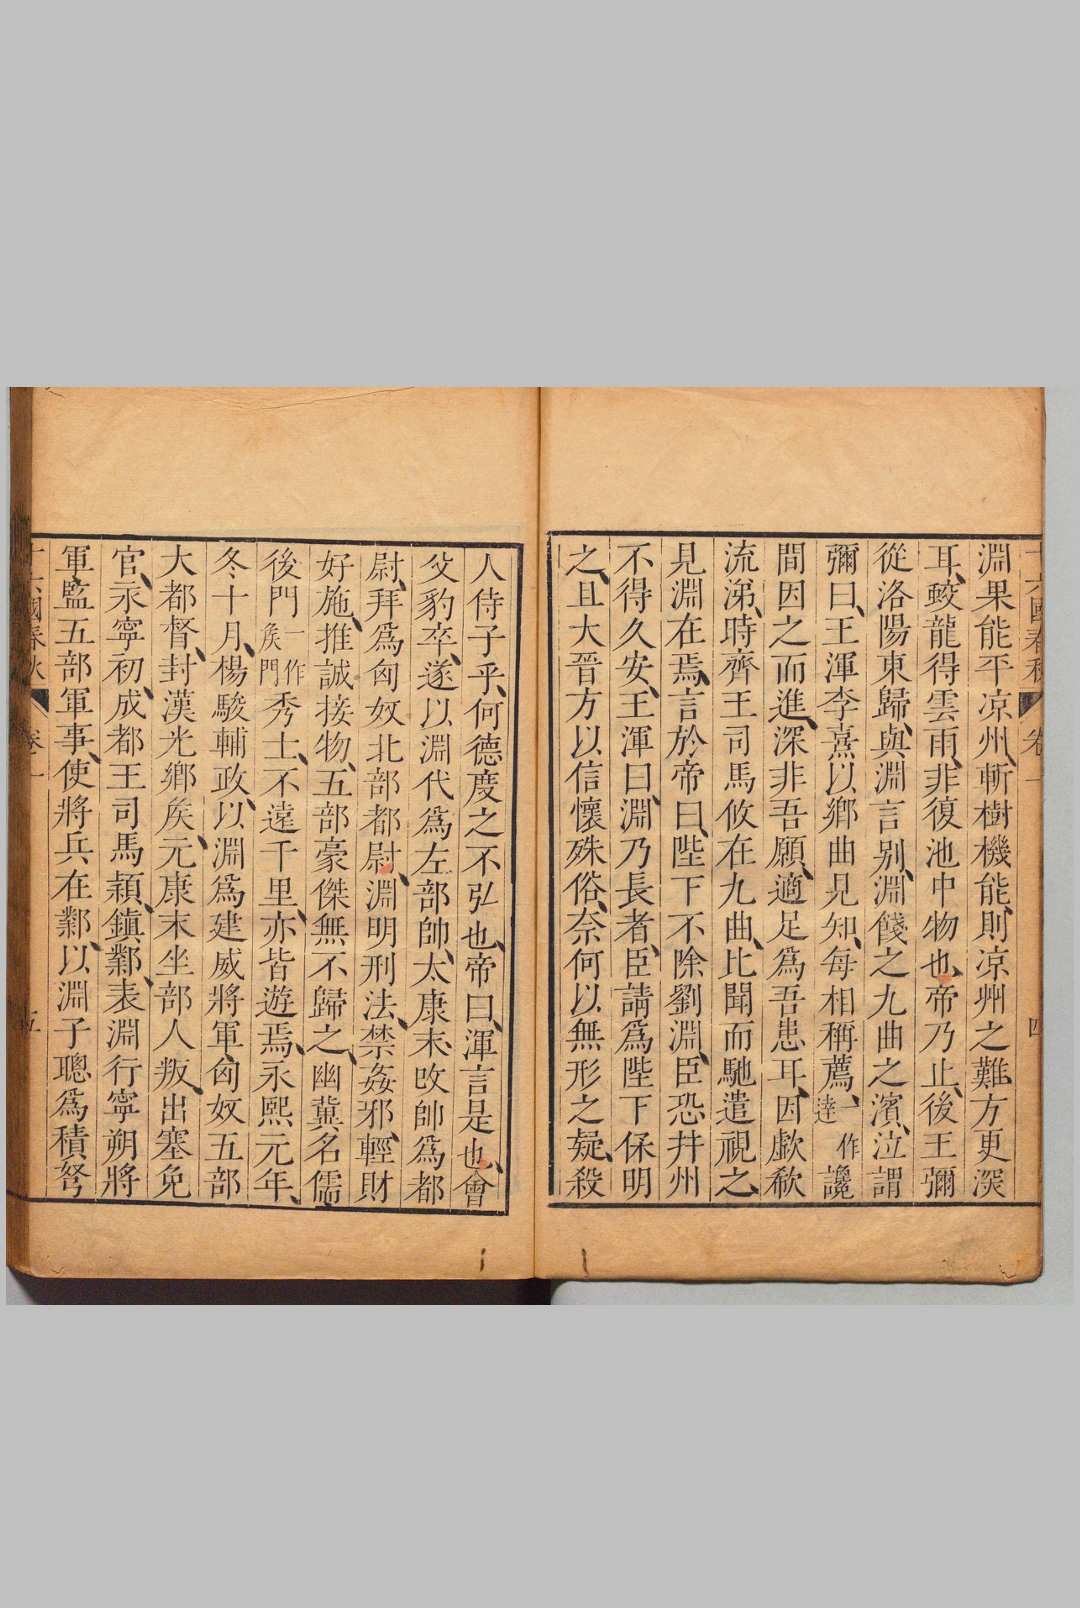 十六國春秋 卷一 四
淵果能平凉州、斬樹機能、則凉州之難方更深
耳、蛟龍得雲雨、非復池中物也、帝乃止、後王彌
從洛陽東歸、與淵言别、淵餞之九曲之濱、泣謂
彌曰、王渾李熹以鄉曲見知、每相稱薦、一作達讒
間因之而進、深非吾願、適足爲吾患耳、因歔欷
流涕、時齊王司馬攸在九曲、比聞而馳遣視之、
見淵在焉、言於帝曰、陛下不除劉淵、臣恐并州
不得久安、王渾曰、淵乃長者、臣請爲陛下保明
之、且大晉方以信懷殊俗、奈何以無形之疑、殺
人侍子乎、何德度之不弘也、帝曰、渾言是也、會
父豹卒、遂以淵代爲左部帥、太康末、改帥爲都
尉、拜爲匈奴北部都尉、淵明刑法、禁姦邪、輕財
好施、推誠接物、五部豪傑無不歸之、幽冀名儒
後門一作矦門秀士、不遠千里、亦皆遊焉、永熙元年、
冬十月、楊駿輔政、以淵爲建威將軍、匈奴五部
大都督、封漢光鄉矦、元康末坐部人叛、出塞免
官、永寧初、成都王司馬穎、鎮鄴、表淵行寧朔將
軍、監五部軍事、使將兵在鄴、以淵子聰爲積弩
十六國春秋 卷一 五